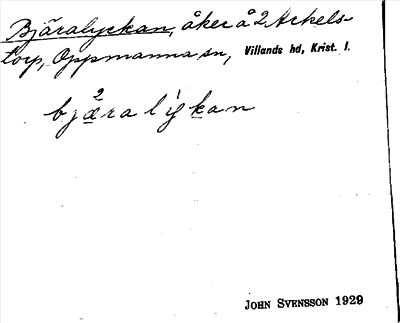 Bjäralyckan, åker å 2 Arkels-
torp, Oppmanna sn, Villands hd, Krist. l.
bjæ²ra lýkan
JOHN SVENSSON 1929